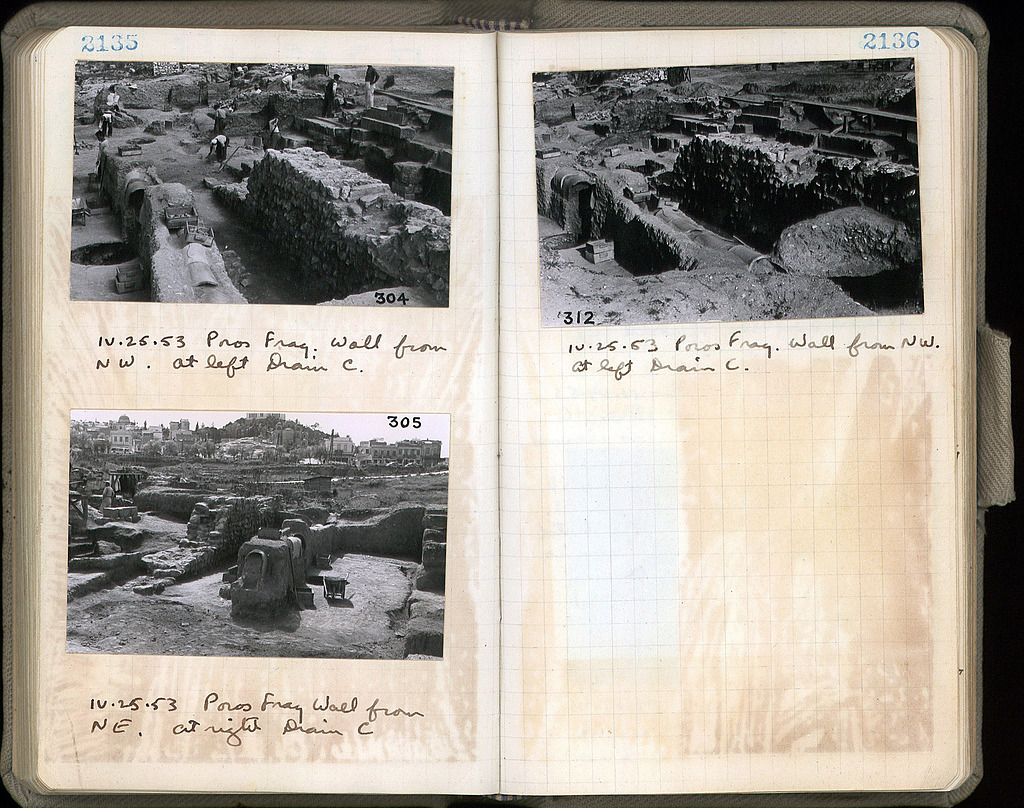 2135
304
IV.25.53 Poros Frag. Wall from
NW. at left Drain C.
305
IV.25.53 Poros Frag Wall from
NE. at right Drain C
2136
312
IV.25.53 Poros Frag. Wall from NW.
at left Drain C.